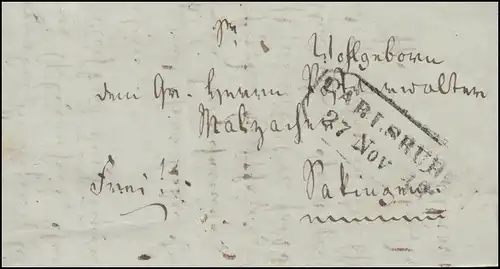 Sr
Wohlgeborn
dem Gr. Herrn Postverwalter
Malzacher
CARLSRUHE
27 Nov
Frei!
Sakingen